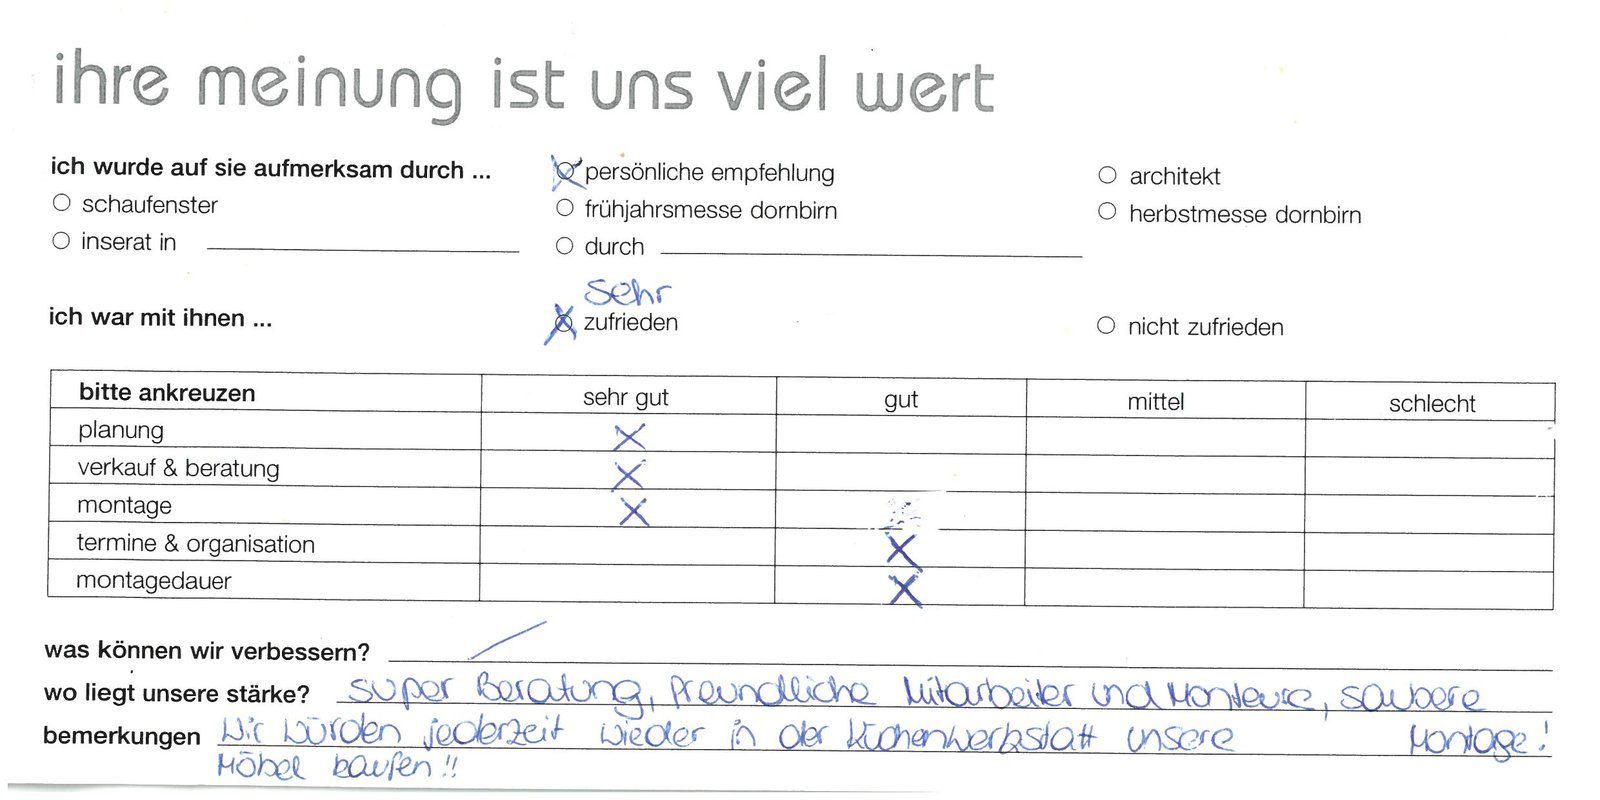 ihre meinung ist uns viel wert
ich wurde auf sie aufmerksam durch ...
persönliche empfehlung
architekt
schaufenster
frühjahrsmesse dornbirn
herbstmesse dornbirn
inserat in
durch
sehr
ich war mit ihnen ...
zufrieden
nicht zufrieden
bitte ankreuzen sehr gut gut mittel schlecht
planung X
verkauf & beratung X
montage X
termine & organisation X
montagedauer X
was können wir verbessern? /
wo liegt unsere stärke? super Beratung, freundliche Mitarbeiter und Monteure, saubere
Montage!
bemerkungen Wir würden jederzeit wieder in der Küchenwerkstatt unsere
Möbel kaufen!!